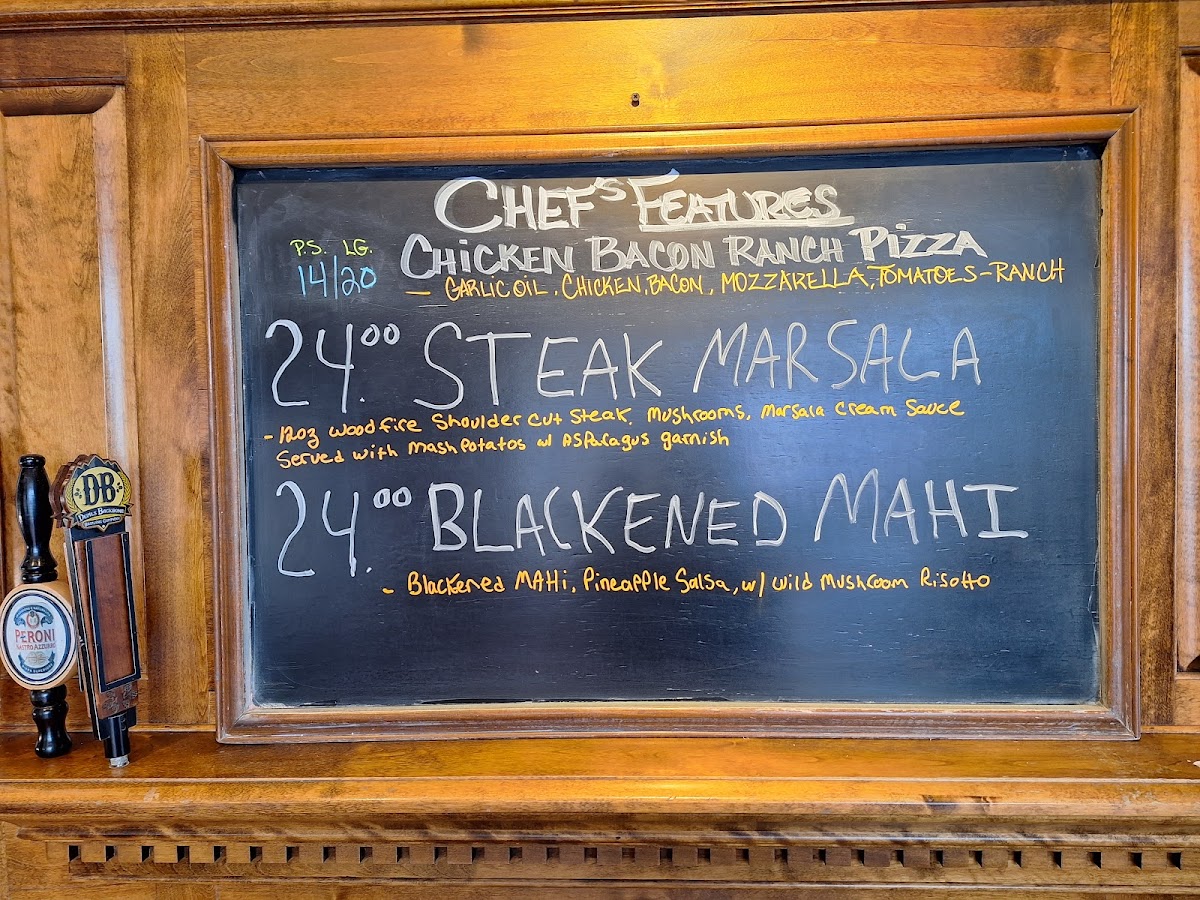 CHEF'S FEATURES
P.S. LG.
14/20
CHICKEN BACON RANCH PIZZA
- GARLIC OIL, CHICKEN, BACON, MOZZARELLA, TOMATOES - RANCH
24.00 STEAK MARSALA
- 12oz woodfire shoulder cut steak, Mushrooms, Marsala Cream Sauce
Served with Mash Potatos w/ Asparagus garnish
24.00 BLACKENED MAHI
- Blackened MAHi, Pineapple Salsa, w/ wild Mushroom Risotto
DB
DEVILS BACKBONE
BREWING COMPANY
PERONI
NASTRO AZZURRO